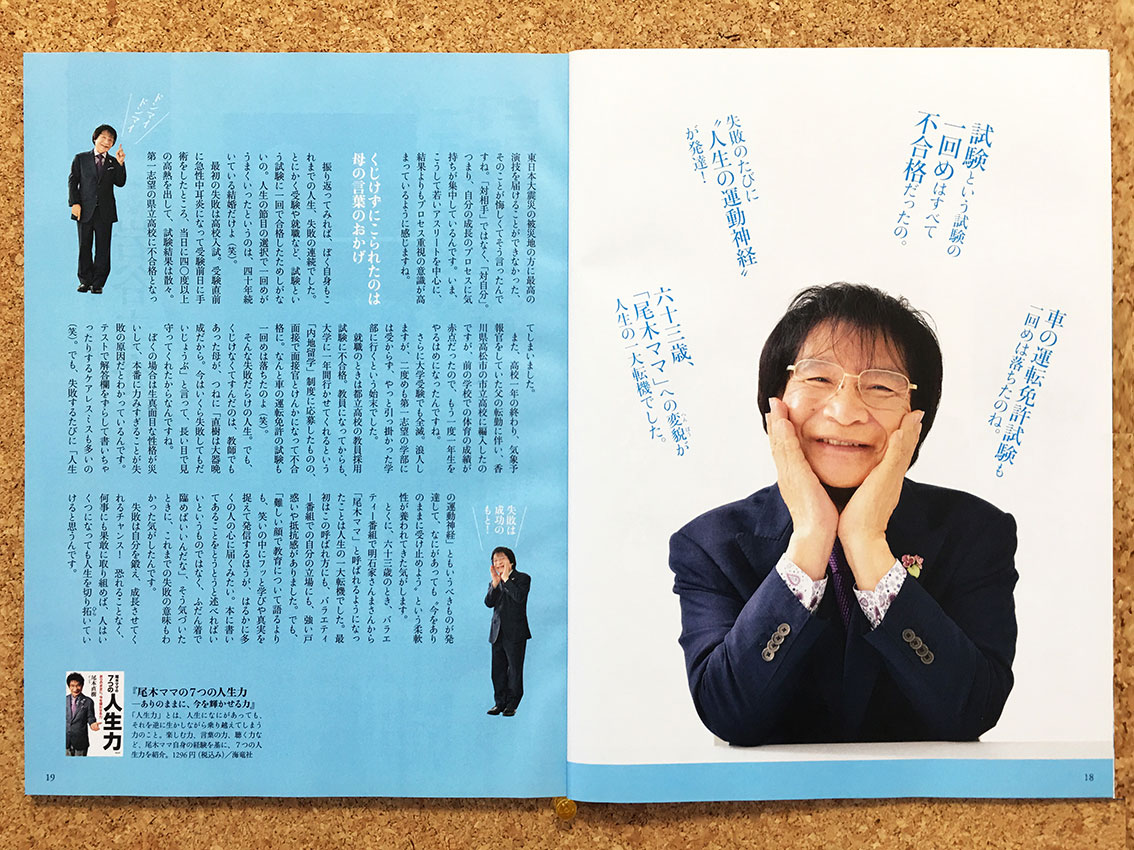 試験という試験の
一回めはすべて
不合格だったの。
失敗のたびに
“人生の運動神経”
が発達！
車の運転免許試験も
一回めは落ちたのね。
六十三歳、
「尾木ママ」への変貌が
人生の一大転機でした。
18
ドンマイ
ドンマイ
東日本大震災の被災地の方に最高の
演技を届けることができなかった、
そのことが悔しくてそう言ったんで
すね。「対相手」ではなく、「対自分」。
つまり、自分の成長のプロセスに気
持ちが集中しているんです。いま、
こうして若いアスリートを中心に、
結果よりもプロセス重視の意識が高
まっているように感じますね。
くじけずにこられたのは
母の言葉のおかげ
振り返ってみれば、ぼく自身もこ
れまでの人生、失敗の連続でした。
とにかく受験や就職など、試験とい
う試験に一回で合格したためしがな
いの。人生の節目の選択で一回めが
うまくいったというのは、四十年続
いている結婚だけよ（笑）。
最初の失敗は高校入試。受験直前
に急性中耳炎になって受験前日に手
術をしたところ、当日に四〇度以上
の高熱を出して、試験結果は散々。
第一志望の県立高校に不合格となっ
てしまいました。
また、高校一年の終わり、気象予
報官をしていた父の転勤に伴い、香
川県高松市の市立高校に編入したの
ですが、前の学校での体育の成績が
赤点だったので、もう一度一年生を
やるはめになったんですね。
さらに大学受験でも全滅。浪人し
ますが二度めも第一志望の学部に
は受からず、やっと引っ掛かった学
部に行くという始末でした。
就職のときは都立高校の教員採用
試験に不合格。教員になってからも、
大学に一年間行かせてくれるという
「内地留学」制度に応募したものの、
面接で面接官とけんかになって不合
格に。なんと車の運転免許の試験も
一回めは落ちたのよ（笑）。
そんな失敗だらけの人生。でも、
くじけなくてすんだのは、教師でも
あった母が、つねに「直樹は大器晩
成だから。今はいくら失敗してもだ
いじょうぶ」と言って、長い目で見
守ってくれたからなんですね。
ぼくの場合は生真面目な性格が災
いして、本番に力みすぎることが失
敗の原因だとわかっているんです。
テストで解答欄をずらして書いちゃ
ったりするケアレスミスも多いの
（笑）。でも、失敗するたびに「人生
の運動神経」ともいうべきものが発
達して、なにがあっても〝今をあり
のままに受け止めよう〟という柔軟
性が養われてきた気がします。
とくに、六十三歳のとき、バラエ
ティー番組で明石家さんまさんから
「尾木ママ」と呼ばれるようになっ
たことは人生の一大転機でした。最
初はこの呼ばれ方にも、バラエティ
ー番組での自分の立場にも、強い戸
惑いや抵抗感がありました。でも、
「難しい顔で教育について語るより
も、笑いの中にフッと学びや真実を
捉えて発信するほうが、はるかに多
くの人の心に届くみたい。本に書い
てあることをとうとうと述べればい
いというものではなく、ふだん着で
臨めばいいんだな」、そう気づいた
ときに、これまでの失敗の意味もわ
かった気がしたんです。
失敗は自分を鍛え、成長させてく
れるチャンス！　恐れることなく、
何事にも果敢に取り組めば、人はい
くつになっても人生を切り拓いてい
けると思うんです。
失敗は
成功の
もと！
『尾木ママの7つの人生力
―ありのままに、今を輝かせる力』
「人生力」とは、人生になにがあっても、
それを逆に生かしながら乗り越えてしまう
力のこと。楽しむ力、言葉の力、聴く力な
ど、尾木ママ自身の経験を基に、7つの人
生力を紹介。1296円（税込み）／海竜社
尾木ママの
7つの
人生力
尾木直樹
19